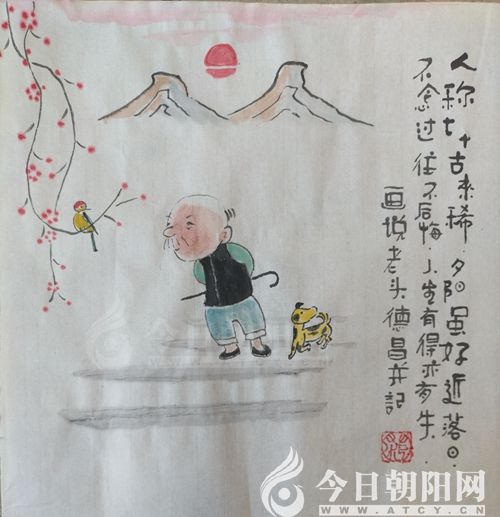 人称七十古来稀.夕阳虽好近落日.
不念过往不后悔.人生有得亦有失.
画说老头德昌并記
今日朝阳网
WWW.ATCY.CN